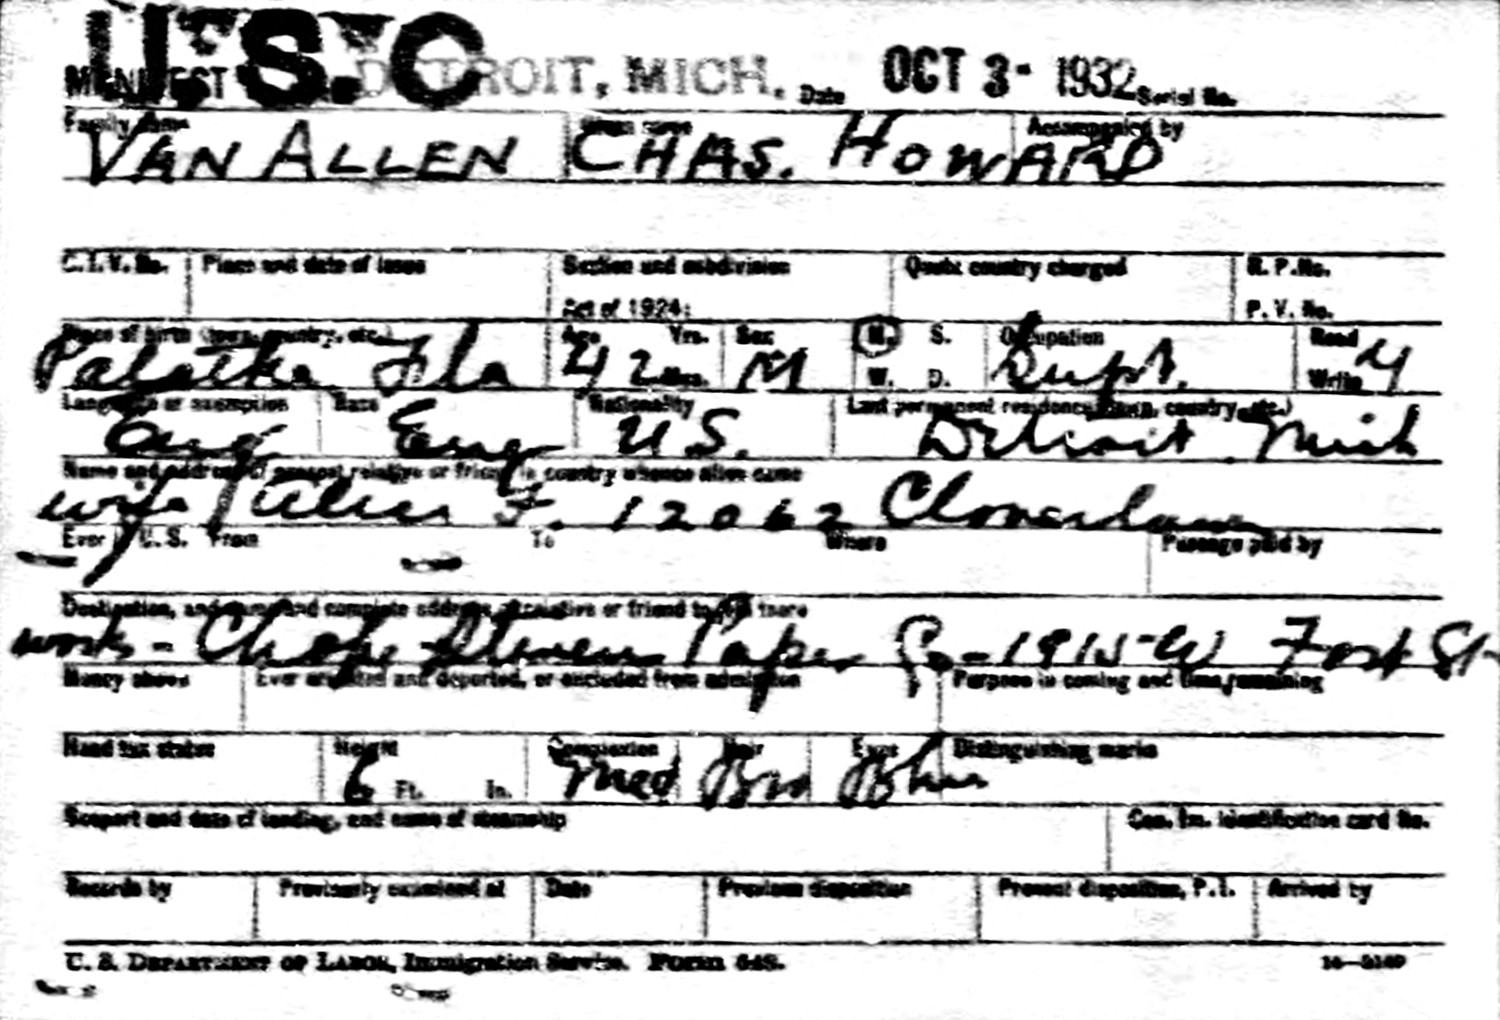 U.S.C
MANIFEST DETROIT, MICH. Date OCT 3- 1932 Serial No.
Family name Given name Accompanied by
VAN ALLEN CHAS. HOWARD
C.I.V. No. Place and date of issue Section and subdivision Quota country charged R. P. No.
Act of 1924: P. V. No.
Place of birth (town, country, etc.) Age Yrs. Sex M. S. Occupation Read
Palatka Fla 42 Mos. M W. D. Supt. Write y
Language or exemption Race Nationality Last permanent residence (town, country, etc.)
Eng Eng U.S. Detroit Mich
Name and address of nearest relative or friend in country whence alien came
wife F. 12062 Cloverlawn
Ever in U.S. From To Where Passage paid by
Destination, and name and complete address of relative or friend to join there
work - Chope Stevens Paper Co - 1915 - W Fort St-
Money shown Ever arrested and deported, or excluded from admission Purpose in coming and time remaining
Head tax status Height Complexion Hair Eyes Distinguishing marks
6 Ft. In. Med Bro Blue
Seaport and date of landing, and name of steamship Can. Im. identification card No.
Records by Previously examined at Date Previous disposition Present disposition, P.I. Arrived by
U. S. DEPARTMENT OF LABOR, Immigration Service. FORM 548.